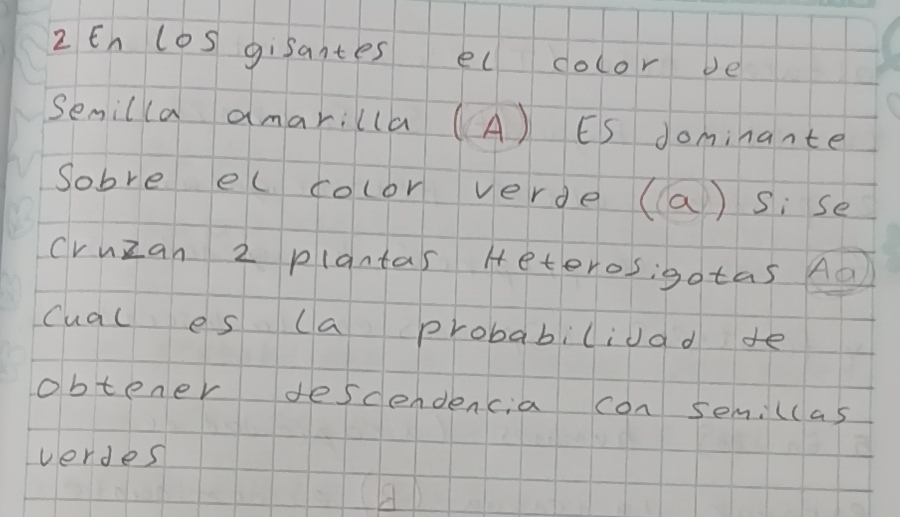 2 En los gisantes el color de
Semilla amarilla (A) ES dominante
Sobre el color verde (a) si se
cruzan 2 plantas Heterosigotas Aa
cual es la probabilidad de
obtener descendencia con semillas
verdes